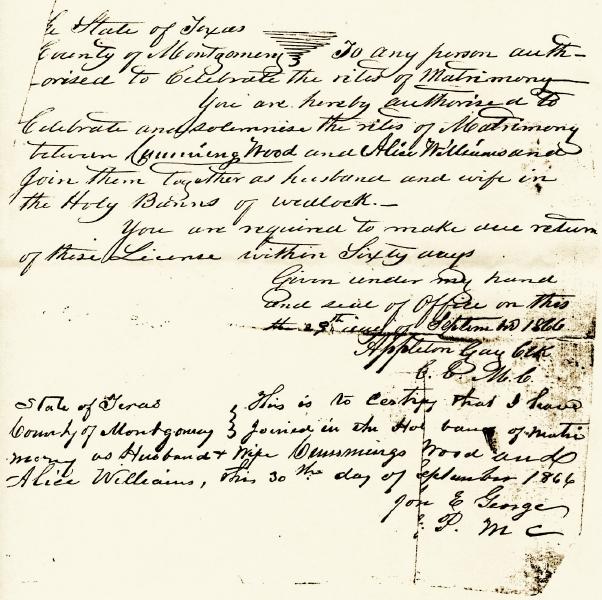 The State of Texas
County of Montgomery } To any person auth-
-orised to Celebrate the rites of Matrimony
You are hereby authorised to
Celebrate and solemnise the rites of Matrimony
between Cumming Wood and Alice Williams and
Join them together as husband and wife in
the Holy Banns of wedlock.—
You are required to make due return
of these License within Sixty days
Given under my hand
and seal of Office on this
the 29th day of Septem 1866
Appleton Gay Clk
C. C. M. C.
State of Texas } This is to certify that I have
County of Montgomery } Joined in the Hol bans of matri
mony as Husband & Wife Cummings Wood and
Alice Williams, this 30th day of September 1866
E George
J. P. M C